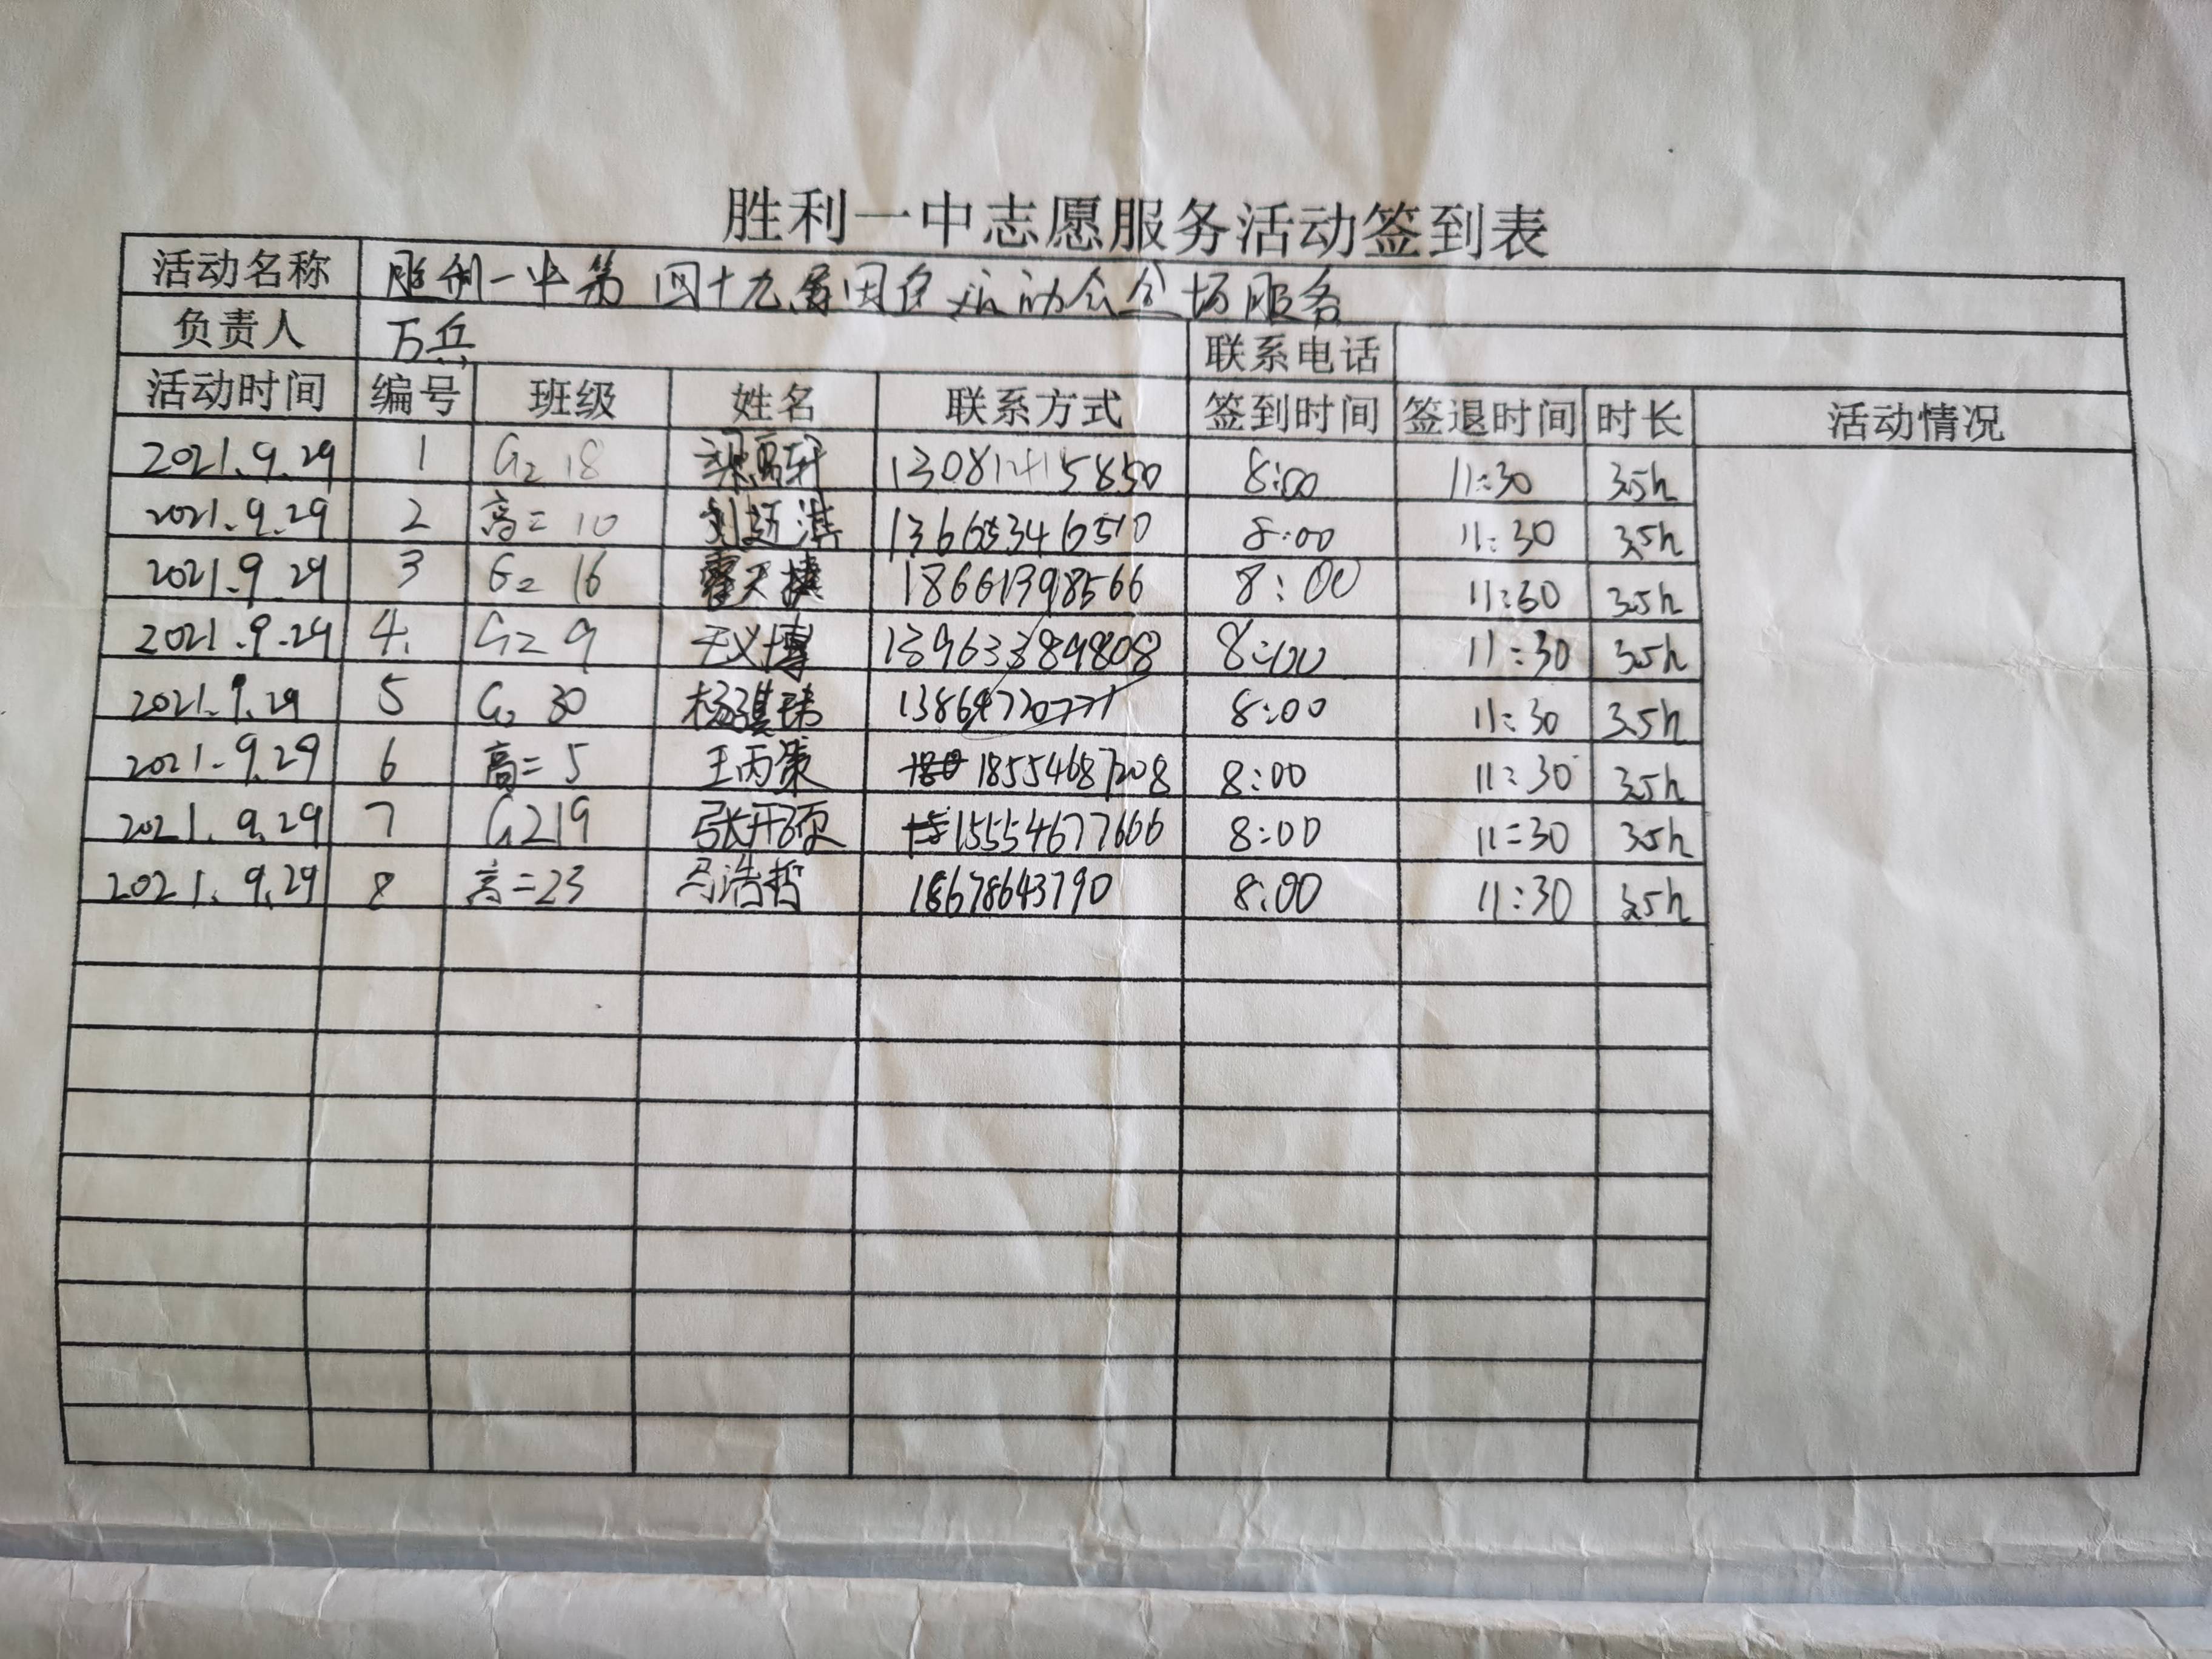 胜利一中志愿服务活动签到表
活动名称 胜利一中第四十九届田径运动会全场服务
负责人 万兵 联系电话
活动时间 编号 班级 姓名 联系方式 签到时间 签退时间 时长 活动情况
2021.9.29 1 G2 18 8:00 11:30 3.5h
2021.9.29 2 高二 10 13665346510 8:00 11:30 3.5h
2021.9.29 3 G2 16 18661398566 8:00 11:30 3.5h
2021.9.29 4. G2 9 王义博 13963389808 8:00 11:30 3.5h
2021.9.29 5 G2 30 杨琪瑞 13864720771 8:00 11:30 3.5h
2021.9.29 6 高二 5 王丙策 18554687208 8:00 11:30 3.5h
2021.9.29 7 G219 张开颜 15554677666 8:00 11:30 3.5h
2021.9.29 8 高二23 马浩哲 18678643790 8:00 11:30 3.5h